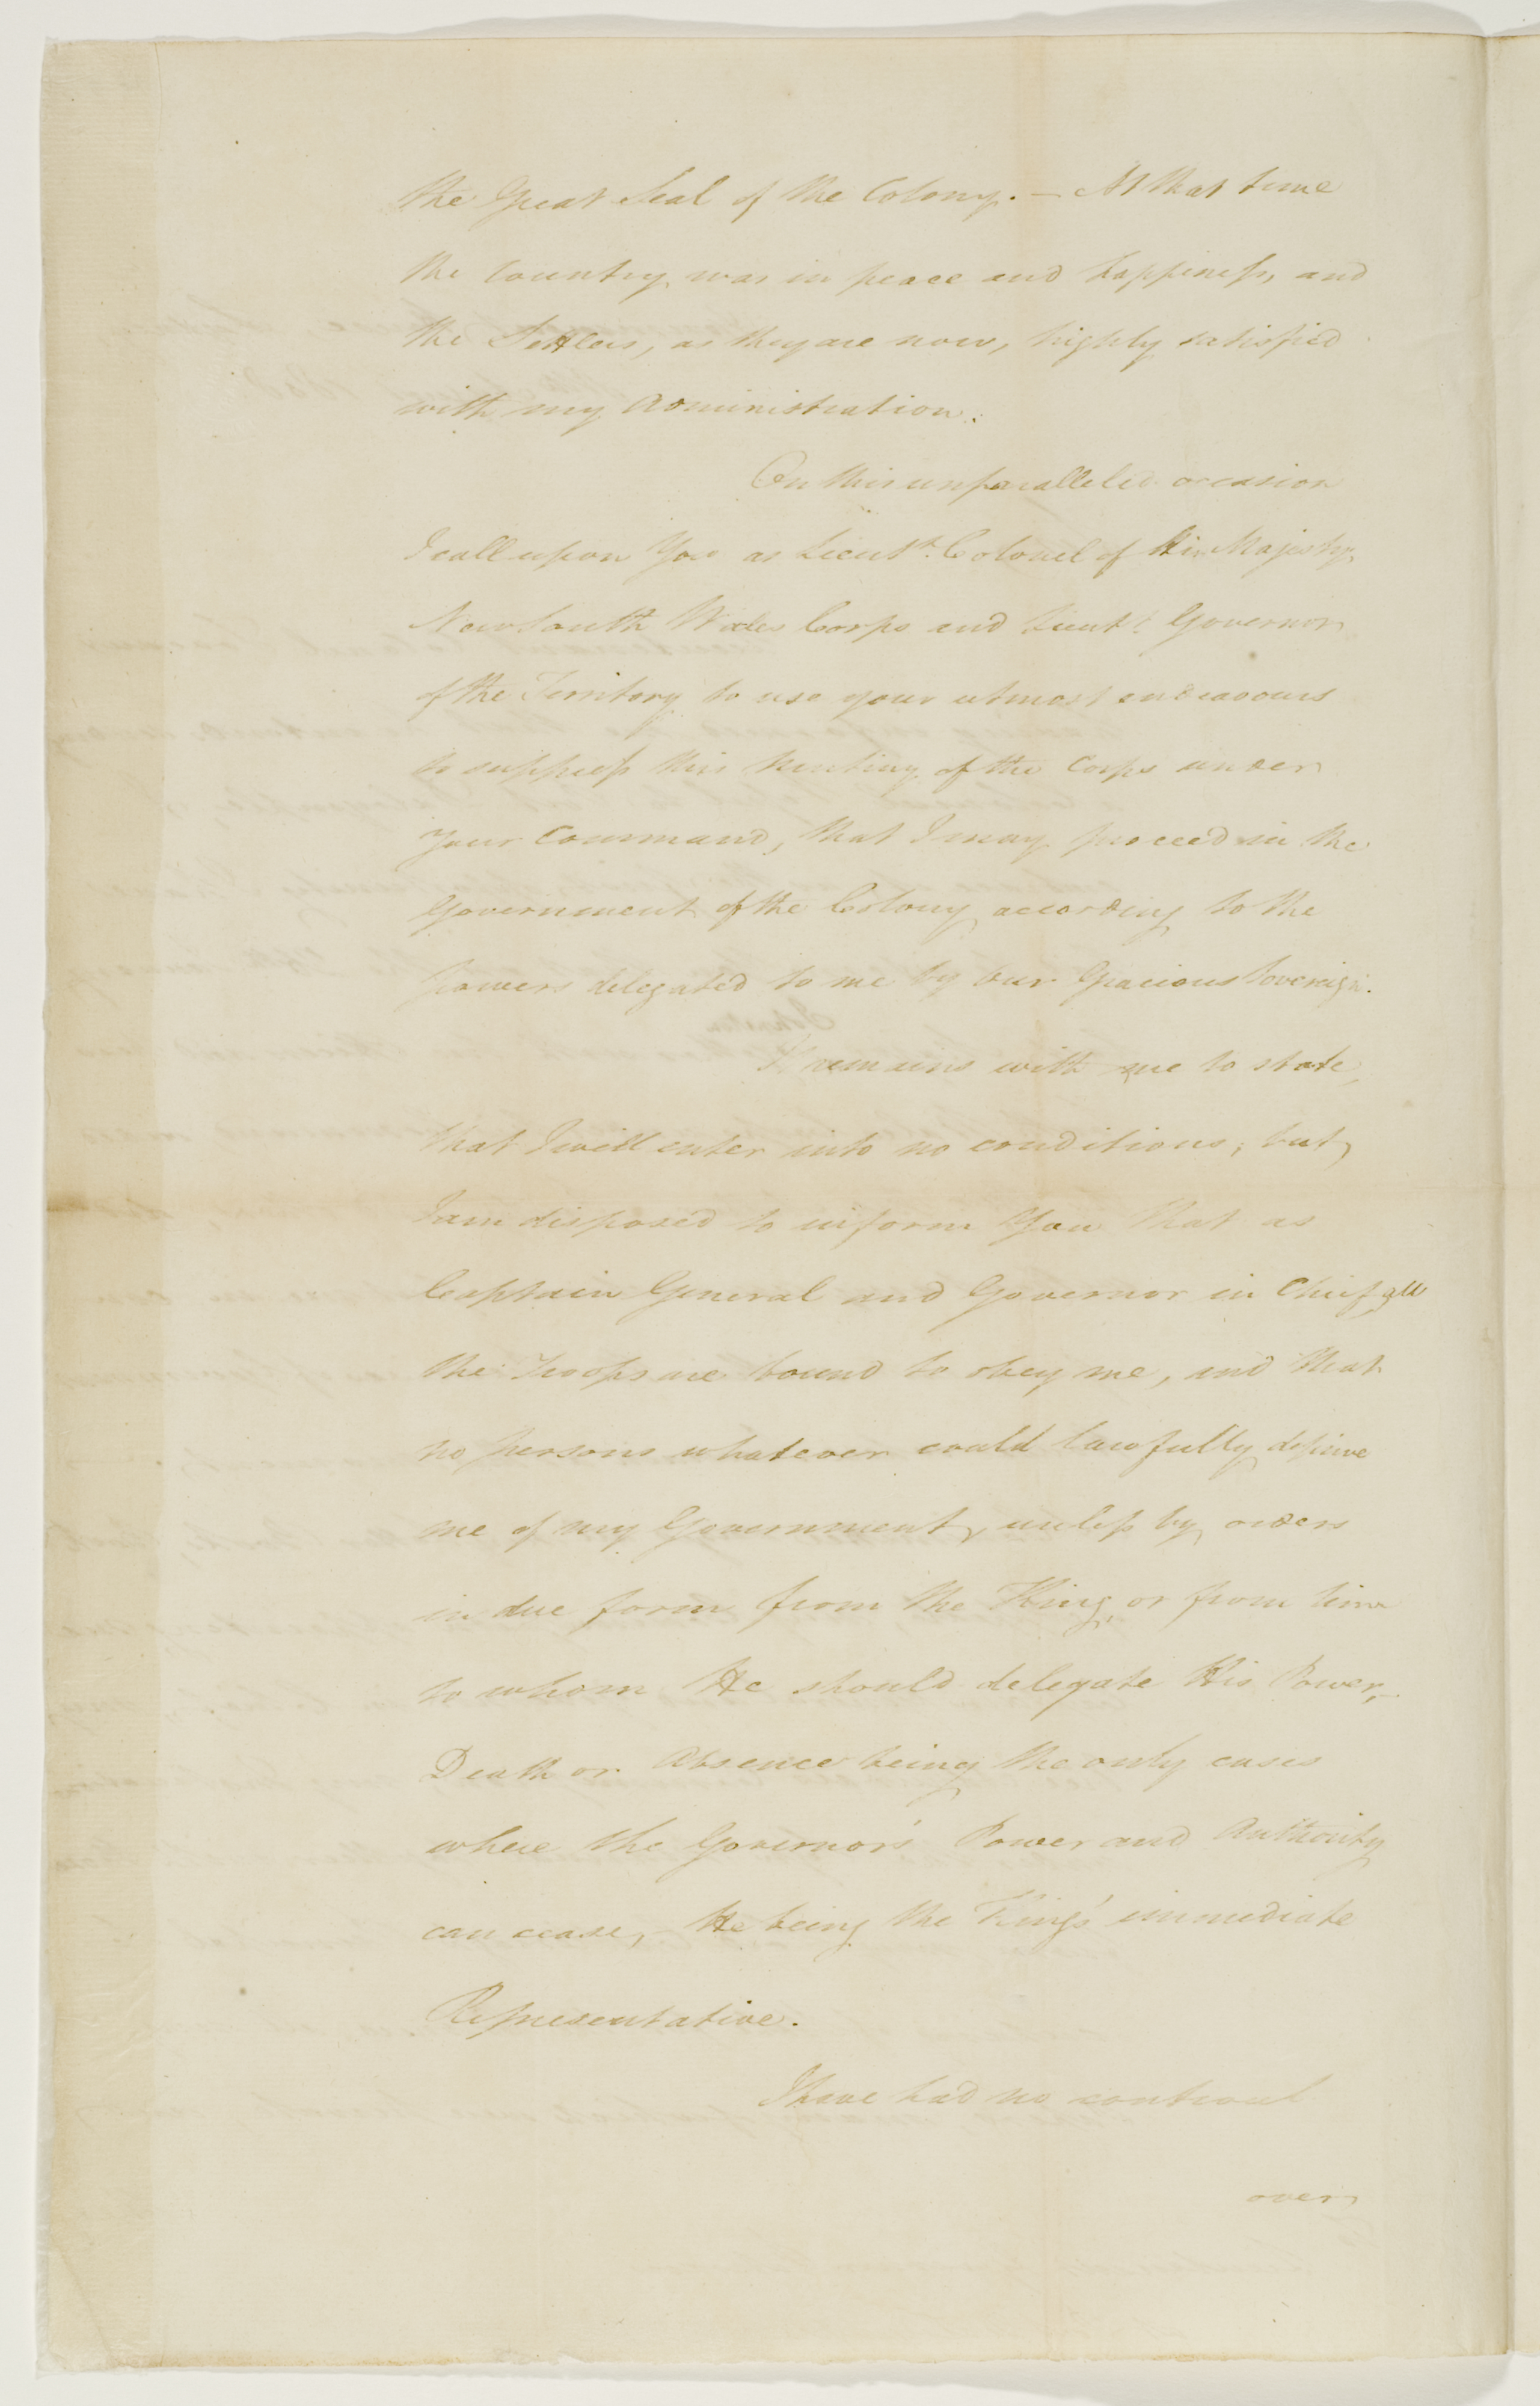 the Great Seal of the Colony. — At that time
the Country was in peace and happiness, and
the Settlers, as they are now, highly satisfied
with my Administration.
On this unparalleled occasion
I call upon You as Lieut.t Colonel of His Majesty's
New South Wales Corps and Lieut.t Governor
of the Territory to use your utmost endeavours
to suppress this Mutiny of the Corps under
Your Command, that I may proceed in the
Government of the Colony according to the
powers delegated to me by our Gracious Sovereign.
It remains with me to state,
that I will enter into no conditions; but,
I am disposed to inform You that as
Captain General and Governor in Chief all
the Troops are bound to obey me, and that
no persons whatever could lawfully deprive
me of my Government, unless by orders
in due form from the King, or from him
to whom He should delegate His Power, —
Death or Absence being the only cases
where the Governor's Power and Authority
can cease, — He being the King's immediate
Representative.
I have had no controul
over